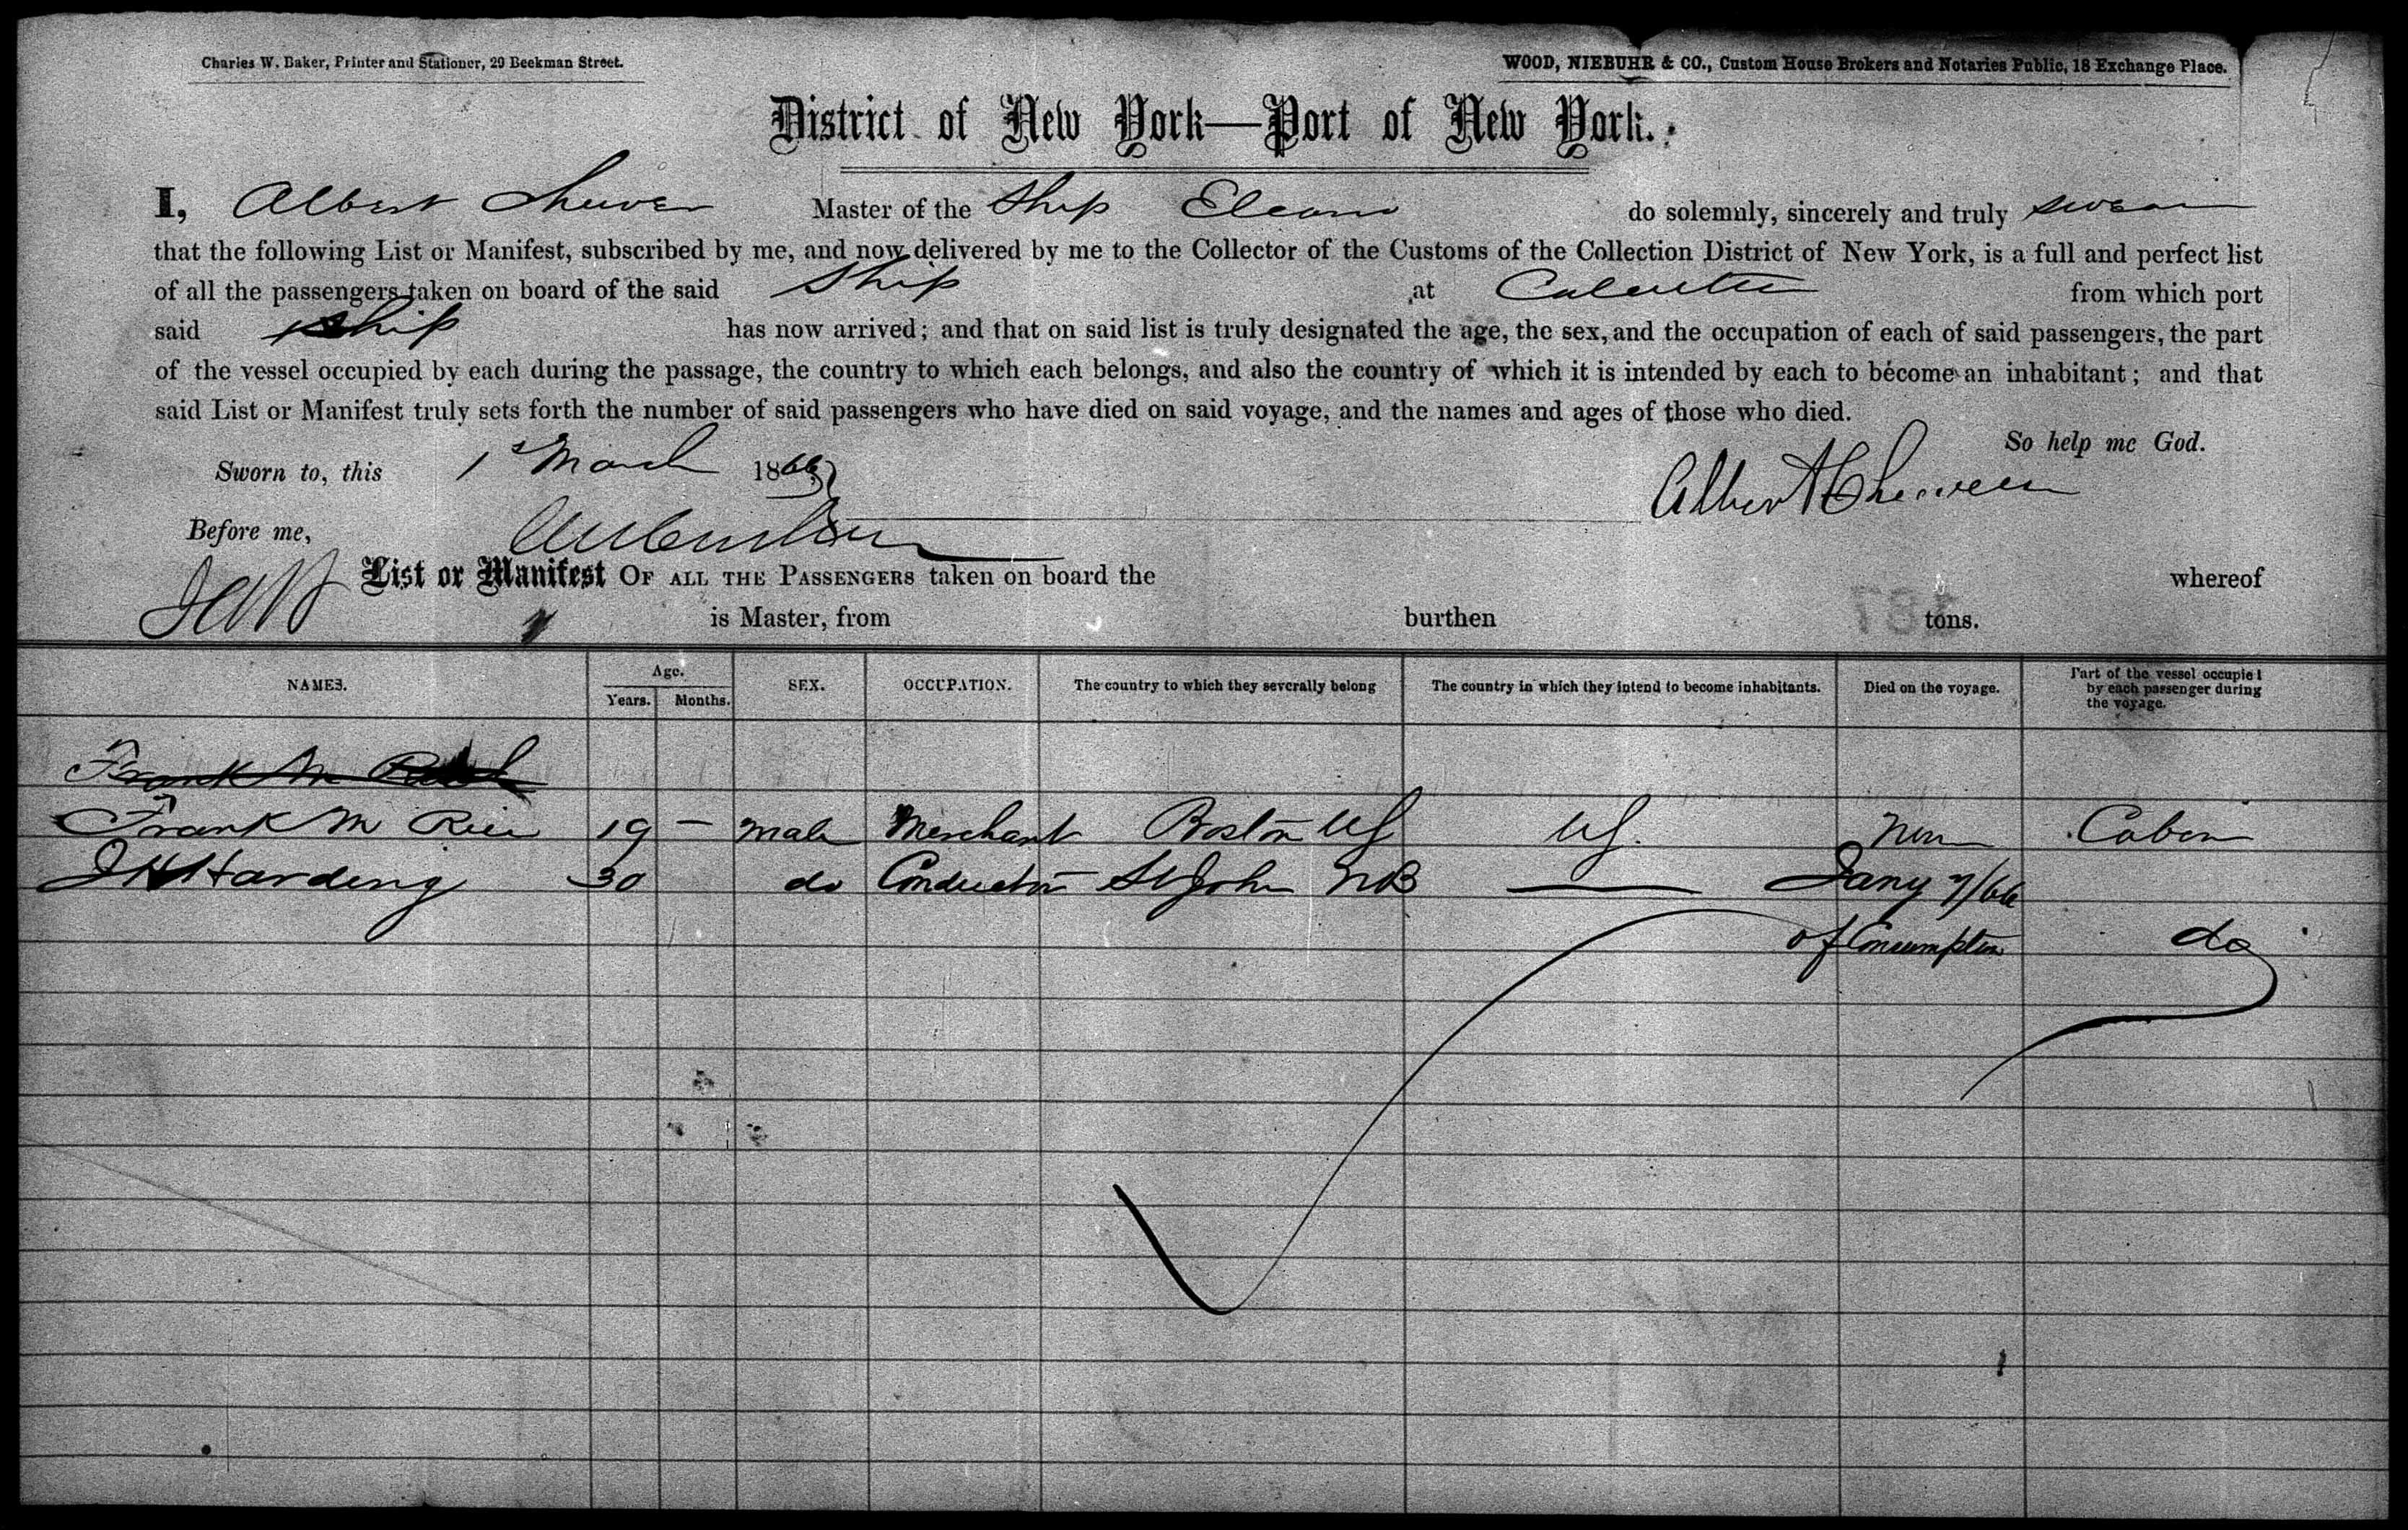 Charles W. Baker, Printer and Stationer, 29 Beekman Street.
WOOD, NIEBUHR & CO., Custom House Brokers and Notaries Public, 18 Exchange Place.
District of New York—Port of New York.
I, Albert Master of the Ship do solemnly, sincerely and truly swear
that the following List or Manifest, subscribed by me, and now delivered by me to the Collector of the Customs of the Collection District of New York, is a full and perfect list
of all the passengers taken on board of the said Ship at Calcutta from which port
said ship has now arrived; and that on said list is truly designated the age, the sex, and the occupation of each of said passengers, the part
of the vessel occupied by each during the passage, the country to which each belongs, and also the country of which it is intended by each to become an inhabitant; and that
said List or Manifest truly sets forth the number of said passengers who have died on said voyage, and the names and ages of those who died.
So help me God.
Sworn to, this 1st March 1866
Albert H
Before me,
List or Manifest OF ALL THE PASSENGERS taken on board the whereof
is Master, from burthen tons.
NAMES. Age. Years. Months. SEX. OCCUPATION. The country to which they severally belong The country in which they intend to become inhabitants. Died on the voyage. Part of the vessel occupied by each passenger during the voyage.
Frank M
Frank M Rice 19 — male Merchant Boston US US. Cabin
J H Harding 30 do Conductor St John NB —— Jany 7/66
of Consumption do